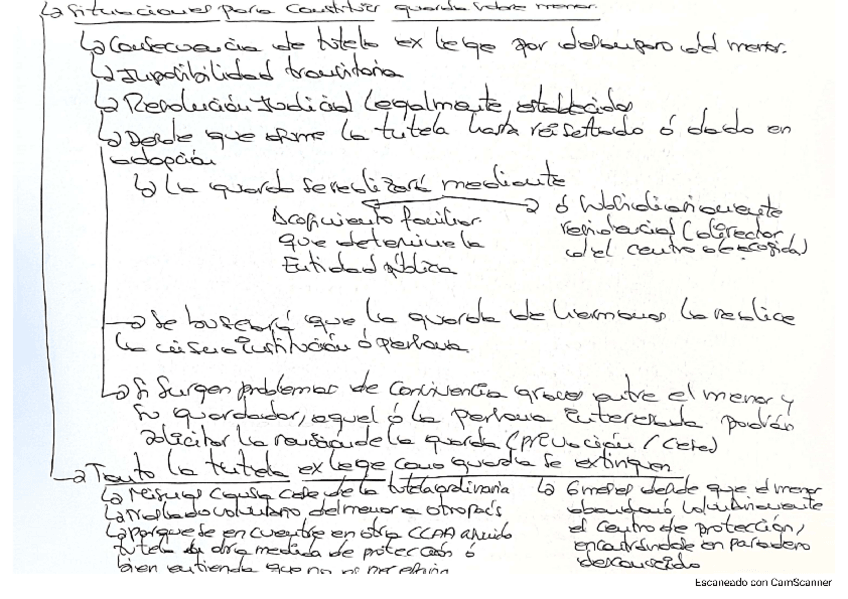 ↳ Situaciones para constituir guarda sobre menor.
↳ Consecuencia de tutela ex lege por desamparo del menor.
↳ Imposibilidad transitoria
↳ Resolución Judicial legalmente establecida
↳ Desde que asume la tutela hasta reinsertado ó dado en
adopción
↳ La guarda se realizará mediante
Acogimiento familiar
que determine la
Entidad pública
→ ó subsidiariamente
residencial (director
del centro de acogida)
→ Se buscará que la guarda de hermanos la realice
la misma institución ó persona
→ Si surgen problemas de convivencia graves entre el menor y
su guardador, aquel ó la persona interesada podrán
solicitar la remoción de la guarda (privación / cese)
→ Tanto la tutela ex lege como guarda se extinguen
↳ mismas causa cese de la tutela ordinaria
↳ Traslado voluntario del menor a otro país
↳ porque se encuentre en otra CCAA asumido
tutela otra medida de protección ó
bien entienda que no es
↳ 6 meses desde que el menor
abandonó voluntariamente
el centro de protección,
encontrándose en paradero
desconocido
Escaneado con CamScanner